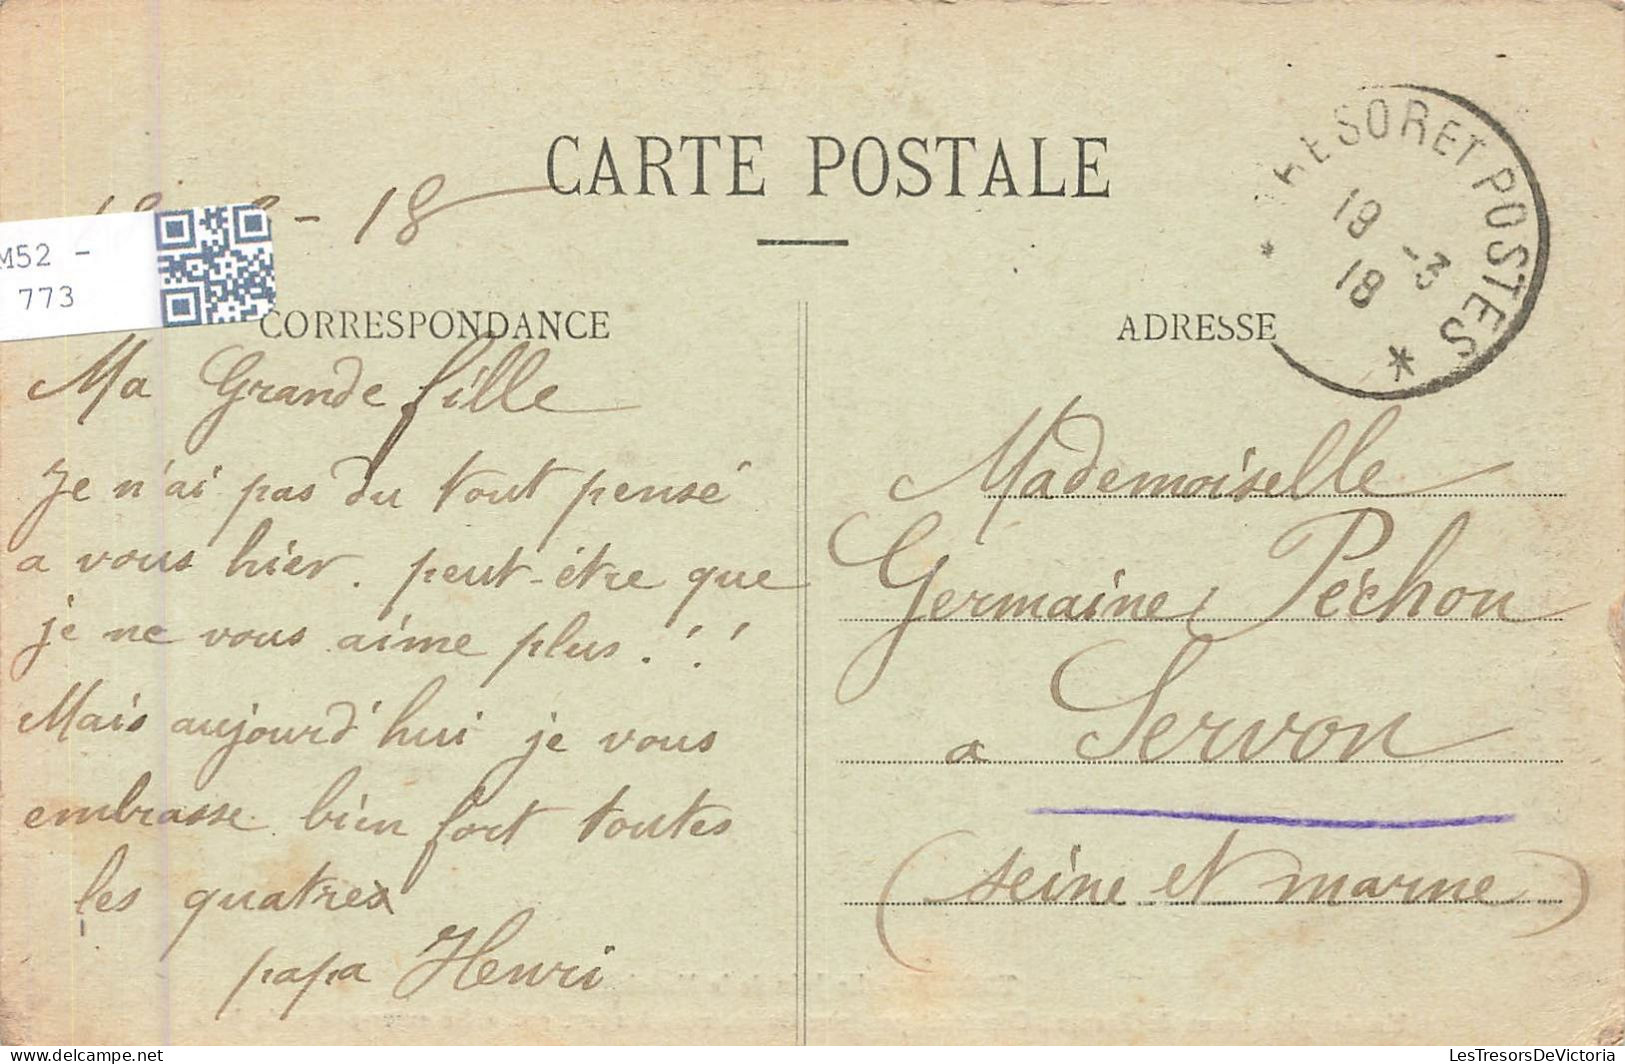 CARTE POSTALE
TRESOR ET POSTES *
19 -3
18
- 18
M52 -
773
CORRESPONDANCE
Ma Grande fille
Je n'ai pas du tout pensé
a vous hier. peut-être que
je ne vous aime plus !!!
Mais aujourd'hui je vous
embrasse bien fort toutes
les quatre
papa Henri
ADRESSE
Mademoiselle
Germaine Péchon
a Servon
(seine et marne)
LesTresorsDeVictoria
delcampe.net